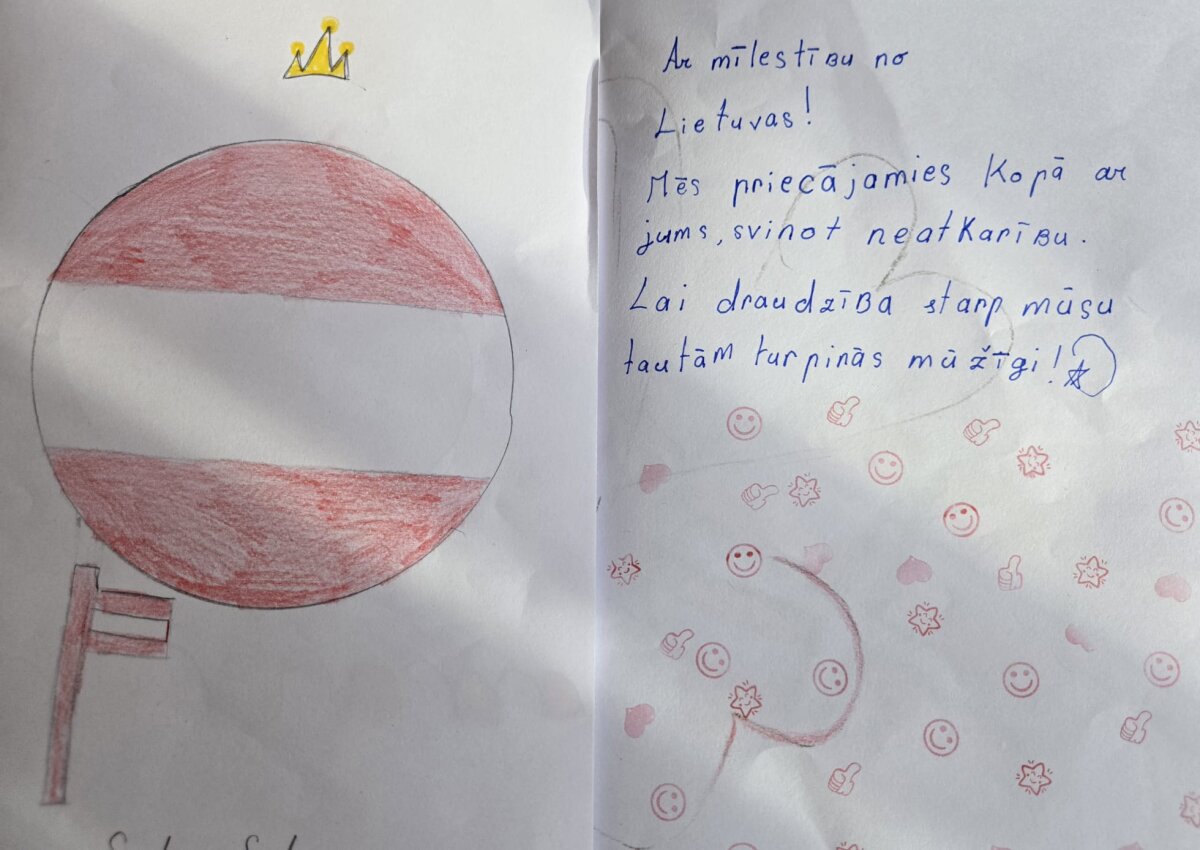 Ar mīlestību no
Lietuvas!
Mēs priecājamies kopā ar
jums, svinot neatkarību.
Lai draudzība starp mūsu
tautām turpinās mūžīgi!